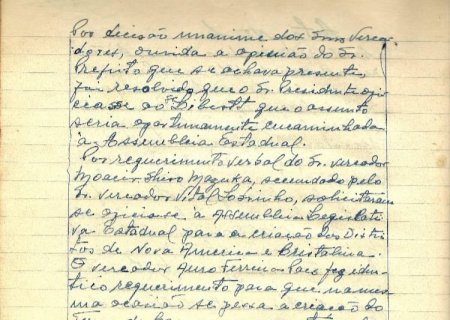 Por decisão unanime dos Snrs Verea-
dores, ouvida a opinião do Sr.
Prefeito que se achava presente,
foi resolvido que o Sr. Presidente ofi-
ciasse ao que o assunto
seria oportunamente encaminhado
à Assembleia Estadual.
Por requerimento verbal do Sr. vereador
Moacir Mazuka, secundado pelo
Sr. vereador Vital Sobrinho, solicitaram
se oficiasse à Assembleia Legislati-
va Estadual para a criação dos Distri-
tos de Nova America e Cristalina.
O vereador Auro Ferreira fez iden-
tico requerimento para que na mes-
ma ocasião se peça a criação do